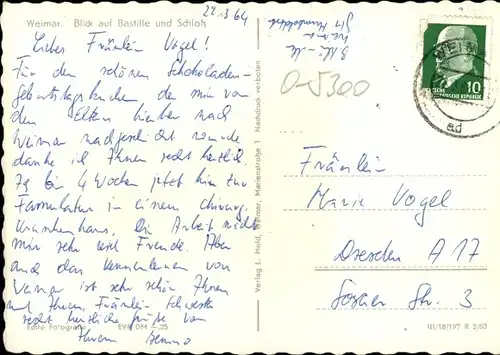 Weimar. Blick auf Bastille und Schloß
22.3.64
Liebes Fräulein Vogel!
Für den schönen Schokoladen-
Geburtstagskuchen der mir von
den Eltern hierher nach
Weimar nachgeschickt wurde
danke ich Ihnen recht herzlich.
4 Wochen jetzt hier zur
Famulatur in einem chirurg.
Krankenhaus. Die Arbeit macht
mir sehr viel Freude. Aber
auch das Kennenlernen von
Weimar ist sehr schön. Ihnen
und Ihrem Fräulein Schwester
recht herzliche Grüße von
Ihrem
Echte Fotografie EVP DM -.25
Verlag L. Held, Weimar, Marienstraße 1 Nachdruck verboten
Weimar
0-5300
WEIMAR
DEUTSCHE DEMOKRATISCHE REPUBLIK
10
ad
Fräulein
Marie Vogel
Dresden A 17
Str. 3
III/18/197 R 2/63